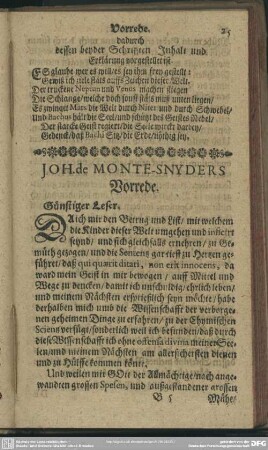 Vorrede. 25
dadurch
dessen beyder Schrifften Inhalt und
Erklärung vorgestellet ist.
ES glaube wer es will/es sey ihm frey gestellt:
Gewiß ich ziele stäts auffs Zeichen dieser Welt.
Der truckne Neptun und Venus machen fliegen
Die Schlange/welche doch sonst stäts muß unten liegen/
Es zwinget Mars die Welt durch und durch Schwefel/
Und Bachus hält die Seel/und schützt des Geistes Nebel/
Der starcke Geist regiert/die Seele
Gedenck/daß Bachi Sitz die Erde
JOH. de MONTE-SNYDERS
Vorrede.
Günstiger Leser.
DAich mir den Betrug und List/ mit welchem
die Kinder dieser Welt umgehen und inficirt
seynd/ und sich gleichsalls ernehren/ zu Ge-
müth gezogen/und die Sentenz gar tieff zu Hertzen ge-
führet/ daß qui quærit ditari, non erit innocens, da
ward mein Geist in mir bewogen / auff Mittel und
Wege zu dencken/damit ich unschuldig/ehrlich leben/
und meinem Nächsten ersprießlich seyn möchte/ habe
derhalben mich umb die Wissenschafft der verborge-
nen geheimen Dinge zu erfahren/ zu der Chymischen
Scienz verfügt/sonderlich weil ich befunden/daß durch
diese Wissenschafft ich ohne offensa divina meiner See-
len/und meinem Nächsten am allersichersten dienen
und zu Hülffe kommen könte.
Und weilen mir GOtt der Allmächtige/nach ange-
wandten grossen Spesen/ und außgestandener grossen
B 5 Mühe/